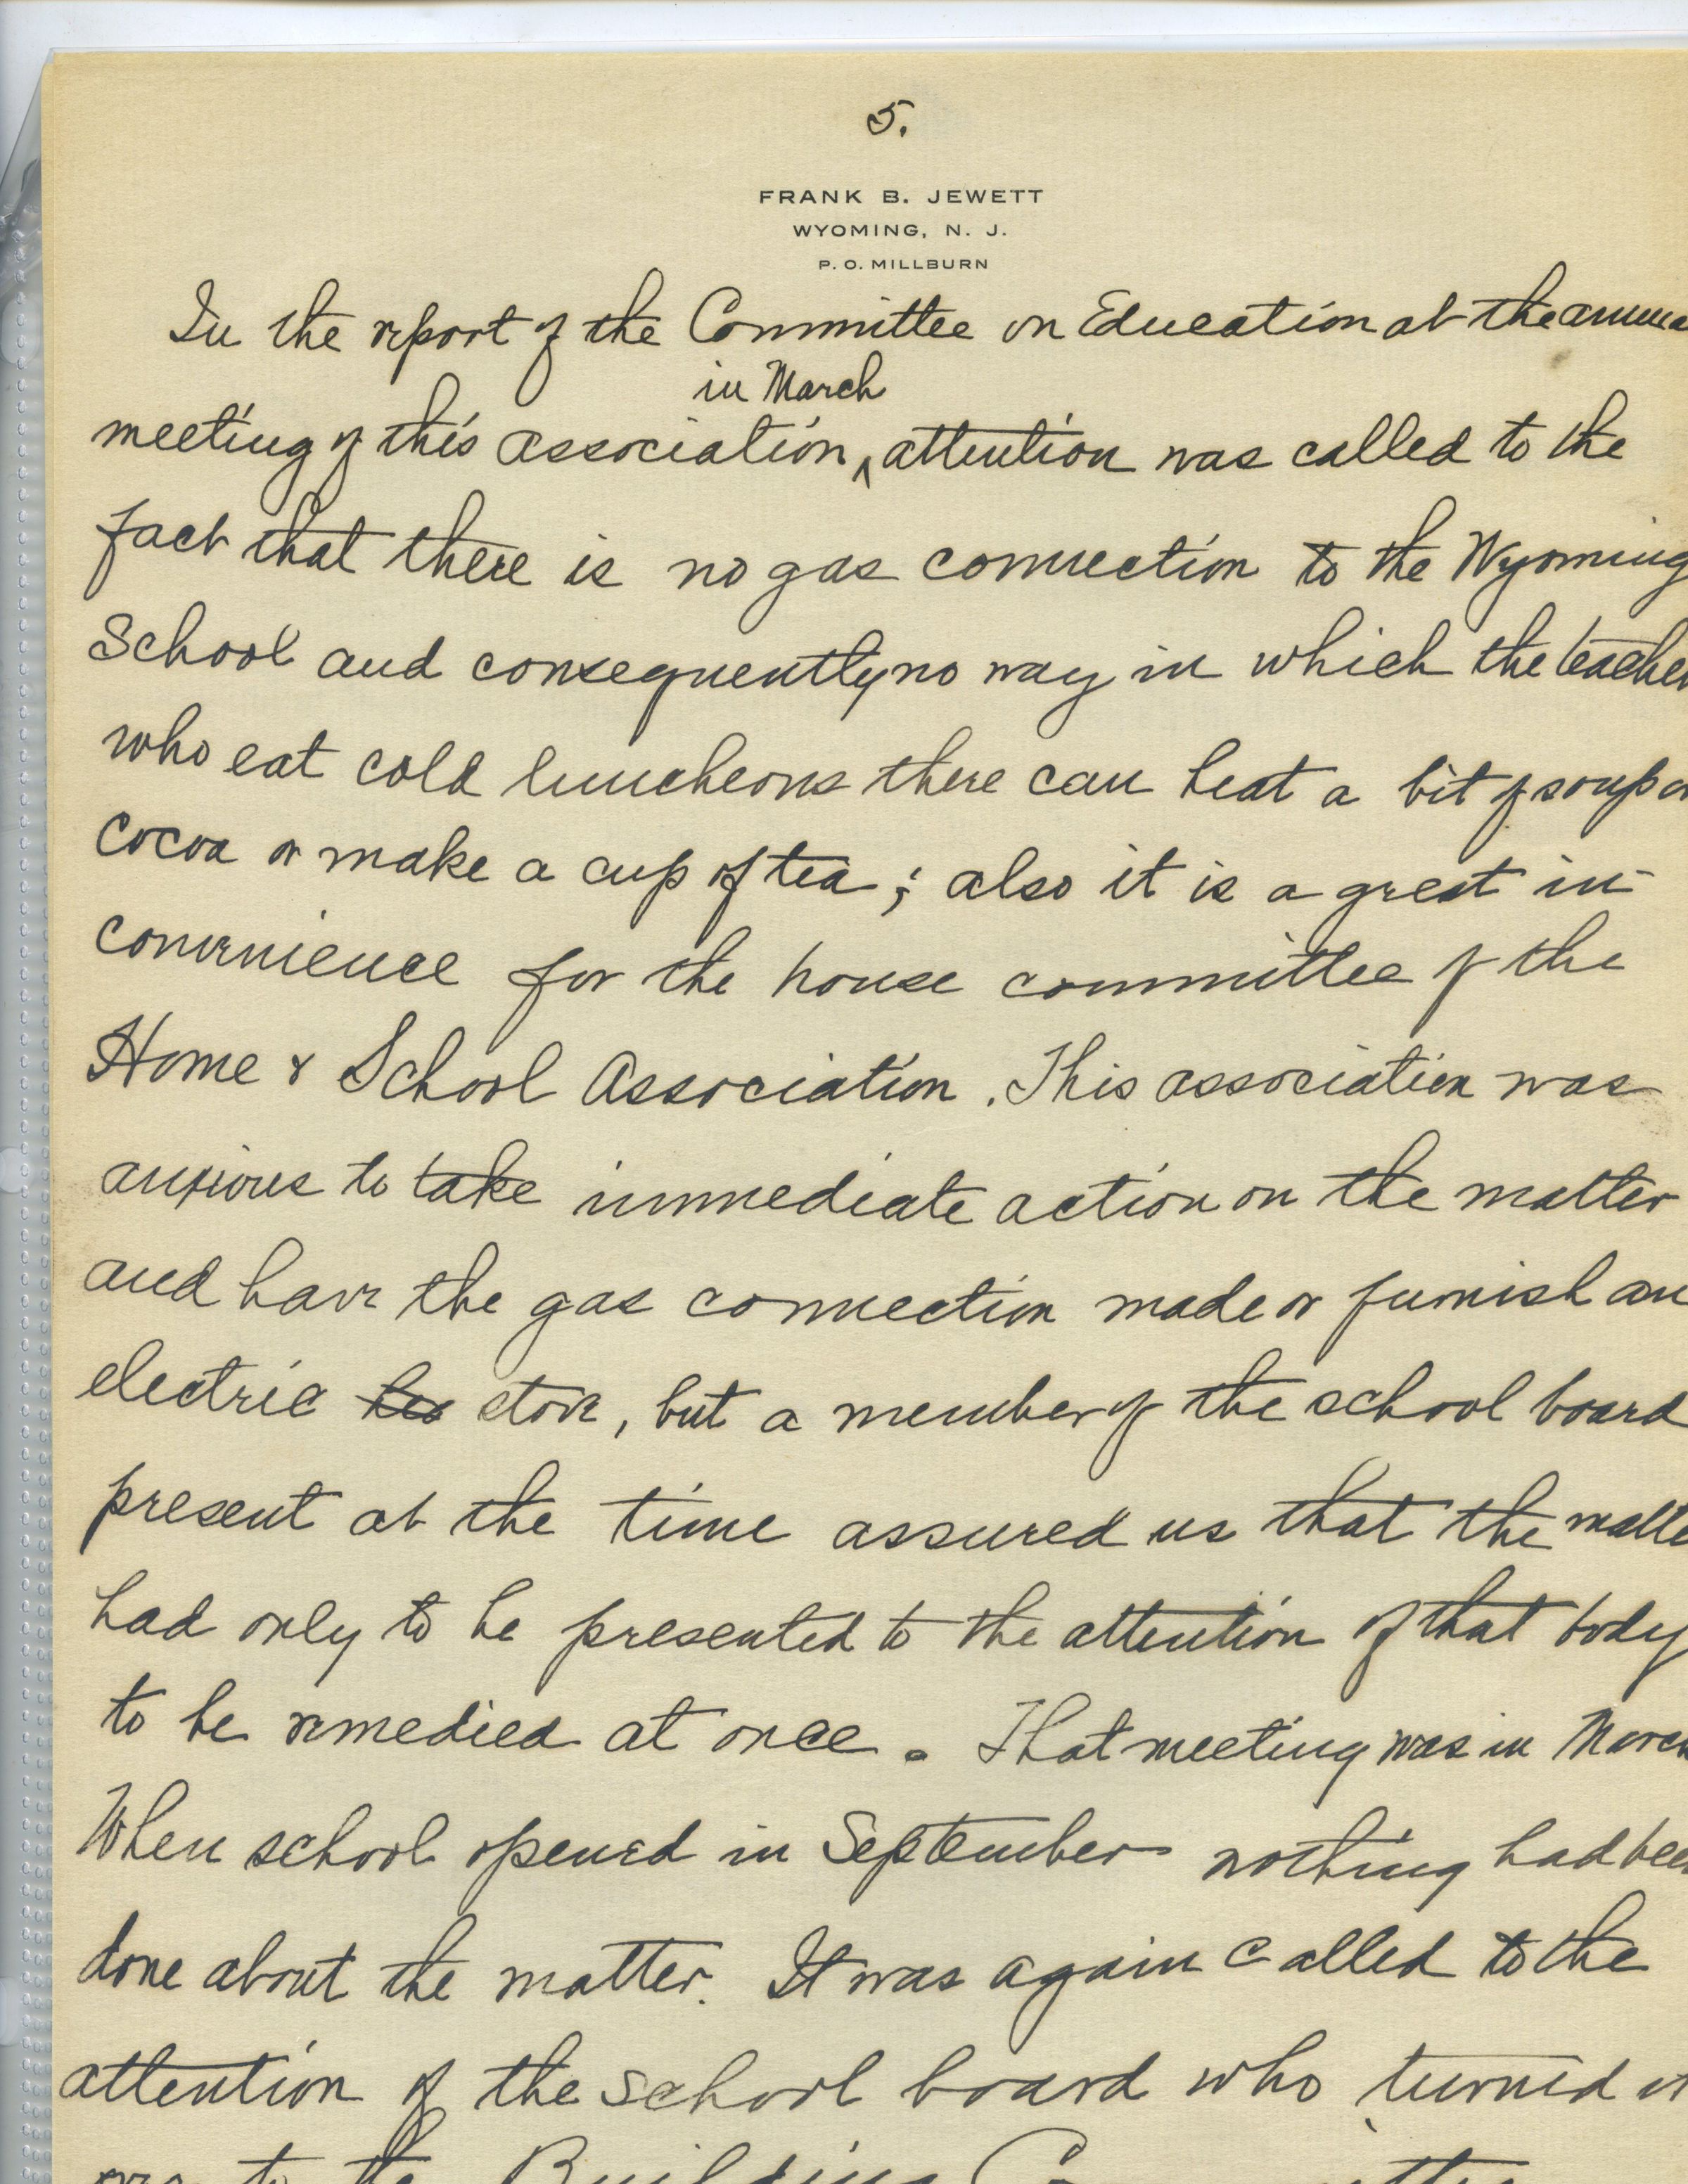 5.
FRANK B. JEWETT
WYOMING, N. J.
P. O. MILLBURN
In the report of the Committee on Education at the annua
in March
meeting of this association, attention was called to the
fact that there is no gas connection to the Wyoming
School and consequently no way in which the teacher
who eat cold luncheons there can heat a bit of soup or
cocoa or make a cup of tea; also it is a great in-
convenience for the house committee of the
Home & School Association. This association was
anxious to take immediate action on the matter
and have the gas connection made or furnish an
electric stove, but a member of the school board
present at the time assured us that the matte
had only to be presented to the attention of that body
to be remedied at once. That meeting was in March
When school opened in September nothing had been
done about the matter. It was again called to the
attention of the school board who turned it
over to the Building Committee